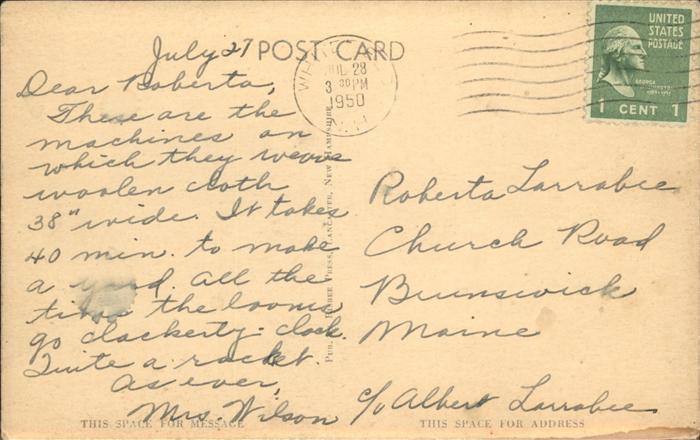 July 27
POST CARD
Dear Roberta,
These are the
machines on
which they weave
woolen cloth
38" wide. It takes
40 min. to make
a yard. All the
time the looms
go clackerty-clack.
Quite a racket.
As ever,
Mrs. Wilson
THIS SPACE FOR MESSAGE
JUL 28
3 30 PM
1950
N.H.
UNITED
STATES
POSTAGE
GEORGE
WASHINGTON
1 CENT 1
Roberta Larrabee
Church Road
Brunswick
Maine
c/o Albert Larrabee
THIS SPACE FOR ADDRESS
PRESS, LANCASTER, NEW HAMPSHIRE